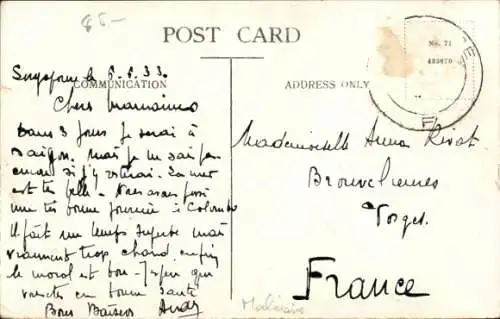 85-
POST CARD
COMMUNICATION
ADDRESS ONLY
No. 71
433870
Singapour le 6.6.33
Chers
Dans 3 jours je serai à
Saigon. mais je ne sais pas
encore si j'y resterai. La mer
est très belle. Nous avons passé
une très bonne journée à Colombo
Il fait un temps superbe mais
vraiment trop chaud enfin
le moral est bon - J'espère que
vous êtes en bonne santé
Bons Baisers
Mademoiselle Anna Rivat
Vosges.
France